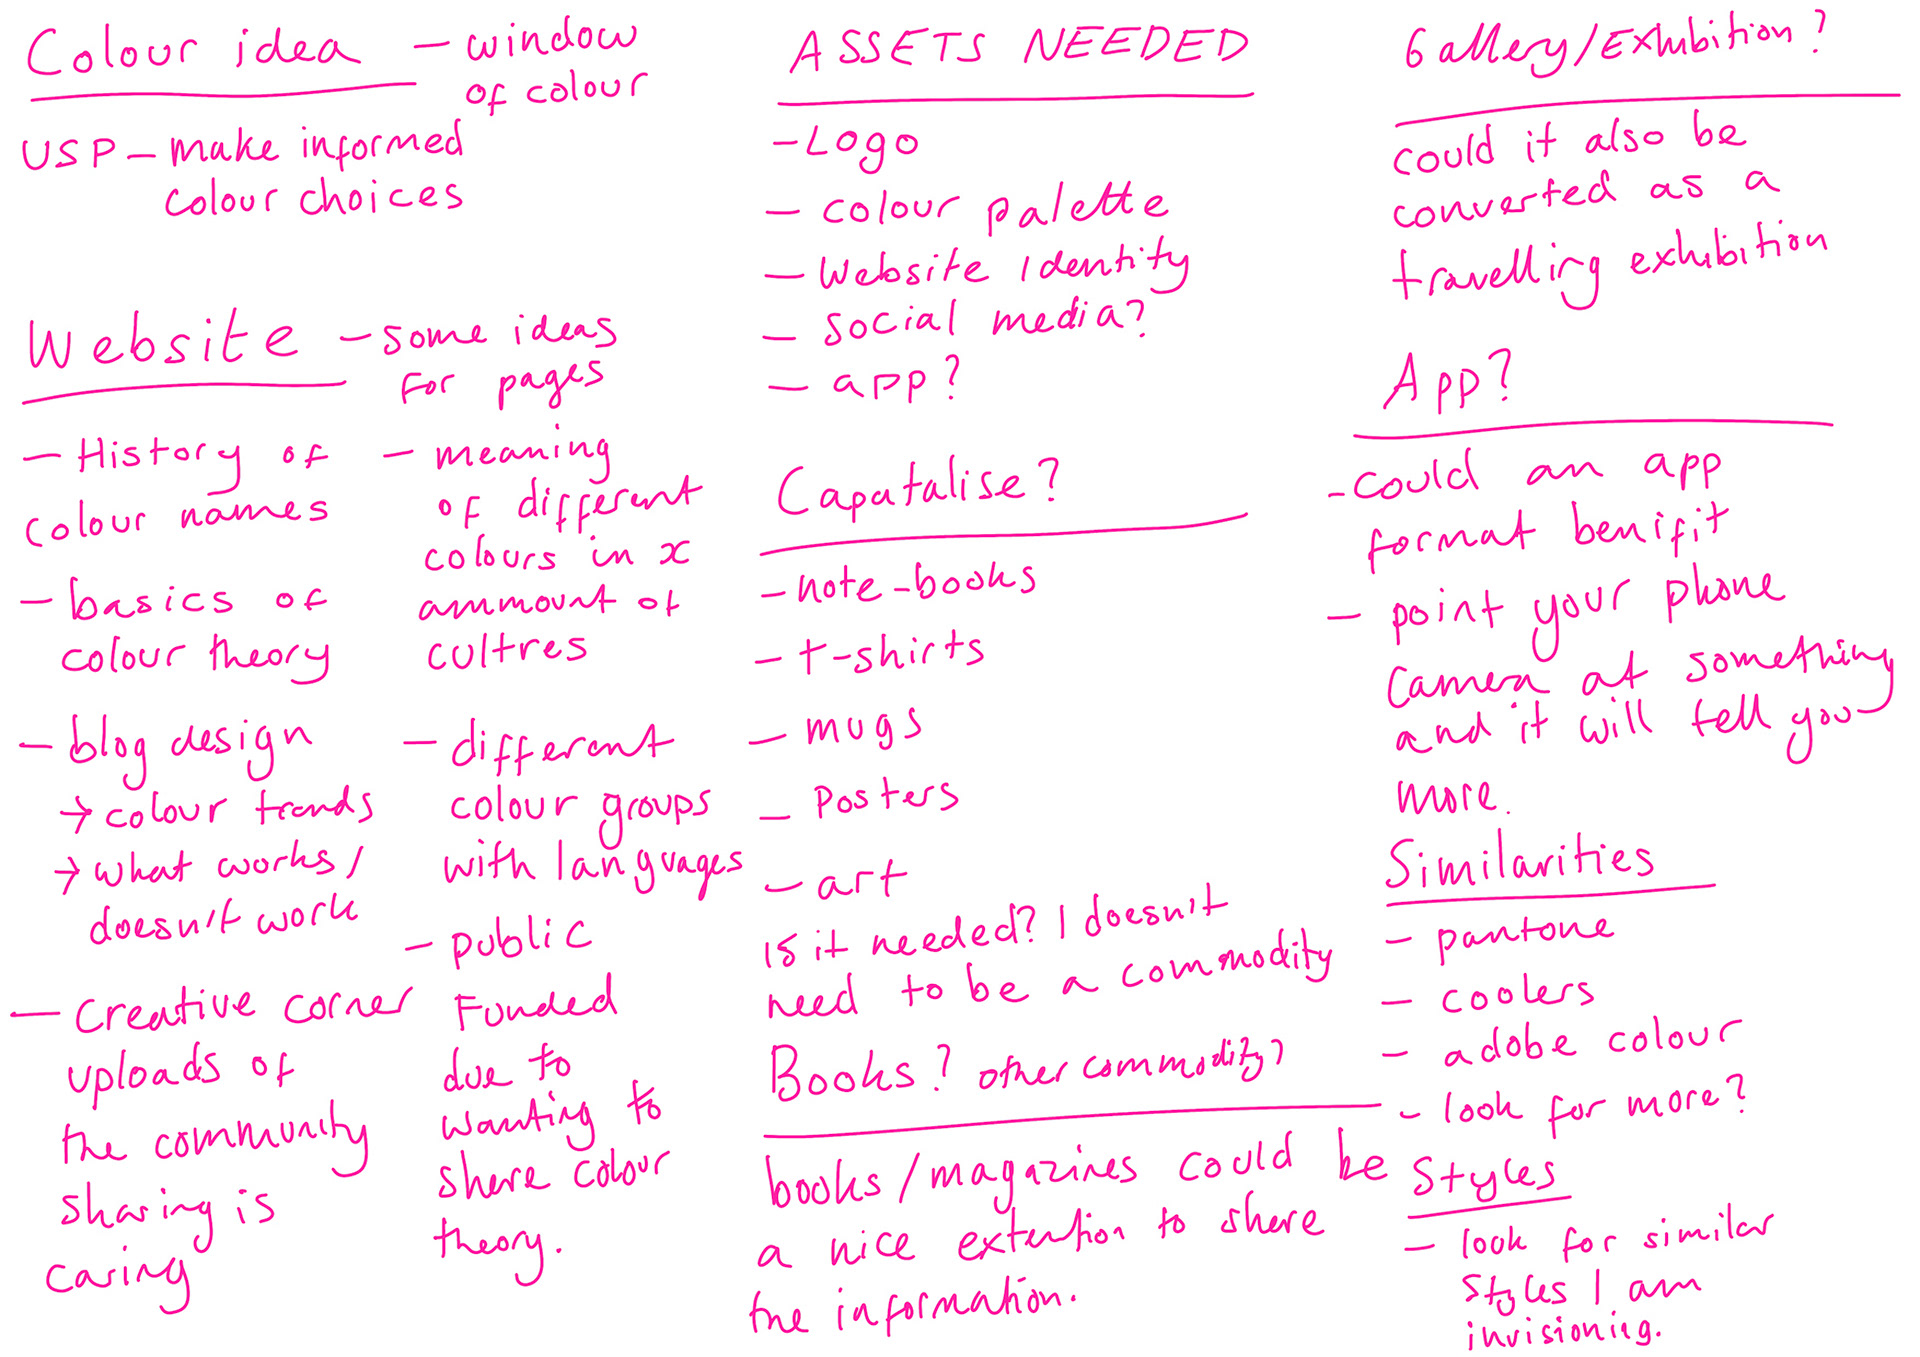 Colour idea - window
of colour
USP - make informed
colour choices
Website - some ideas
for pages
- History of
colour names
- basics of
colour theory
- blog design
→ colour trends
→ what works/
doesn't work
- Creative corner
uploads of
the community
sharing is
caring
- meaning
of different
colours in x
ammount of
cultres
- different
colour groups
with languages
- public
Funded
due to
wanting to
share colour
theory.
ASSETS NEEDED
- Logo
- colour palette
- Website identity
- social media?
- app?
Capatalise?
- note-books
- t-shirts
- mugs
- posters
- art
is it needed? I doesn't
need to be a commodity
Books? other commodity?
books/magazines could be
a nice extention to share
the information.
Gallery/Exhibition?
could it also be
converted as a
travelling exhibition
App?
- could an app
format benifit
- point your phone
camera at something
and it will tell you
more.
Similarities
- pantone
- coolers
- adobe colour
- look for more?
Styles
- look for similar
styles I am
invisioning.